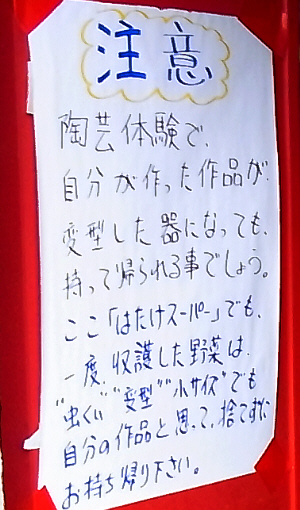 注意
陶芸体験で、
自分が作った作品が、
変型した器になっても、
持って帰られる事でしょう。
ここ「はたけスーパー」でも、
一度、収護した野菜は、
"虫くい""変型""小サイズ"でも
自分の作品と思って、捨てずに
お持ち帰り下さい。